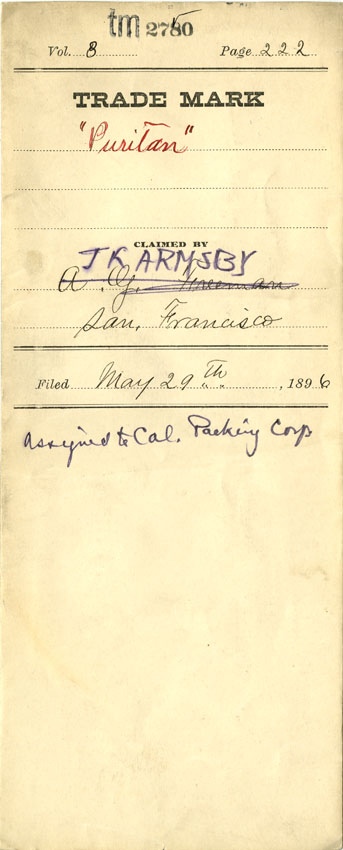 tm 2780
Vol. 8 Page 222
TRADE MARK
"Puritan"
CLAIMED BY
JK ARMSBY
A. G. Freeman
San. Francisco
Filed May 29th, 1896
Assigned to Cal. Packing Corp